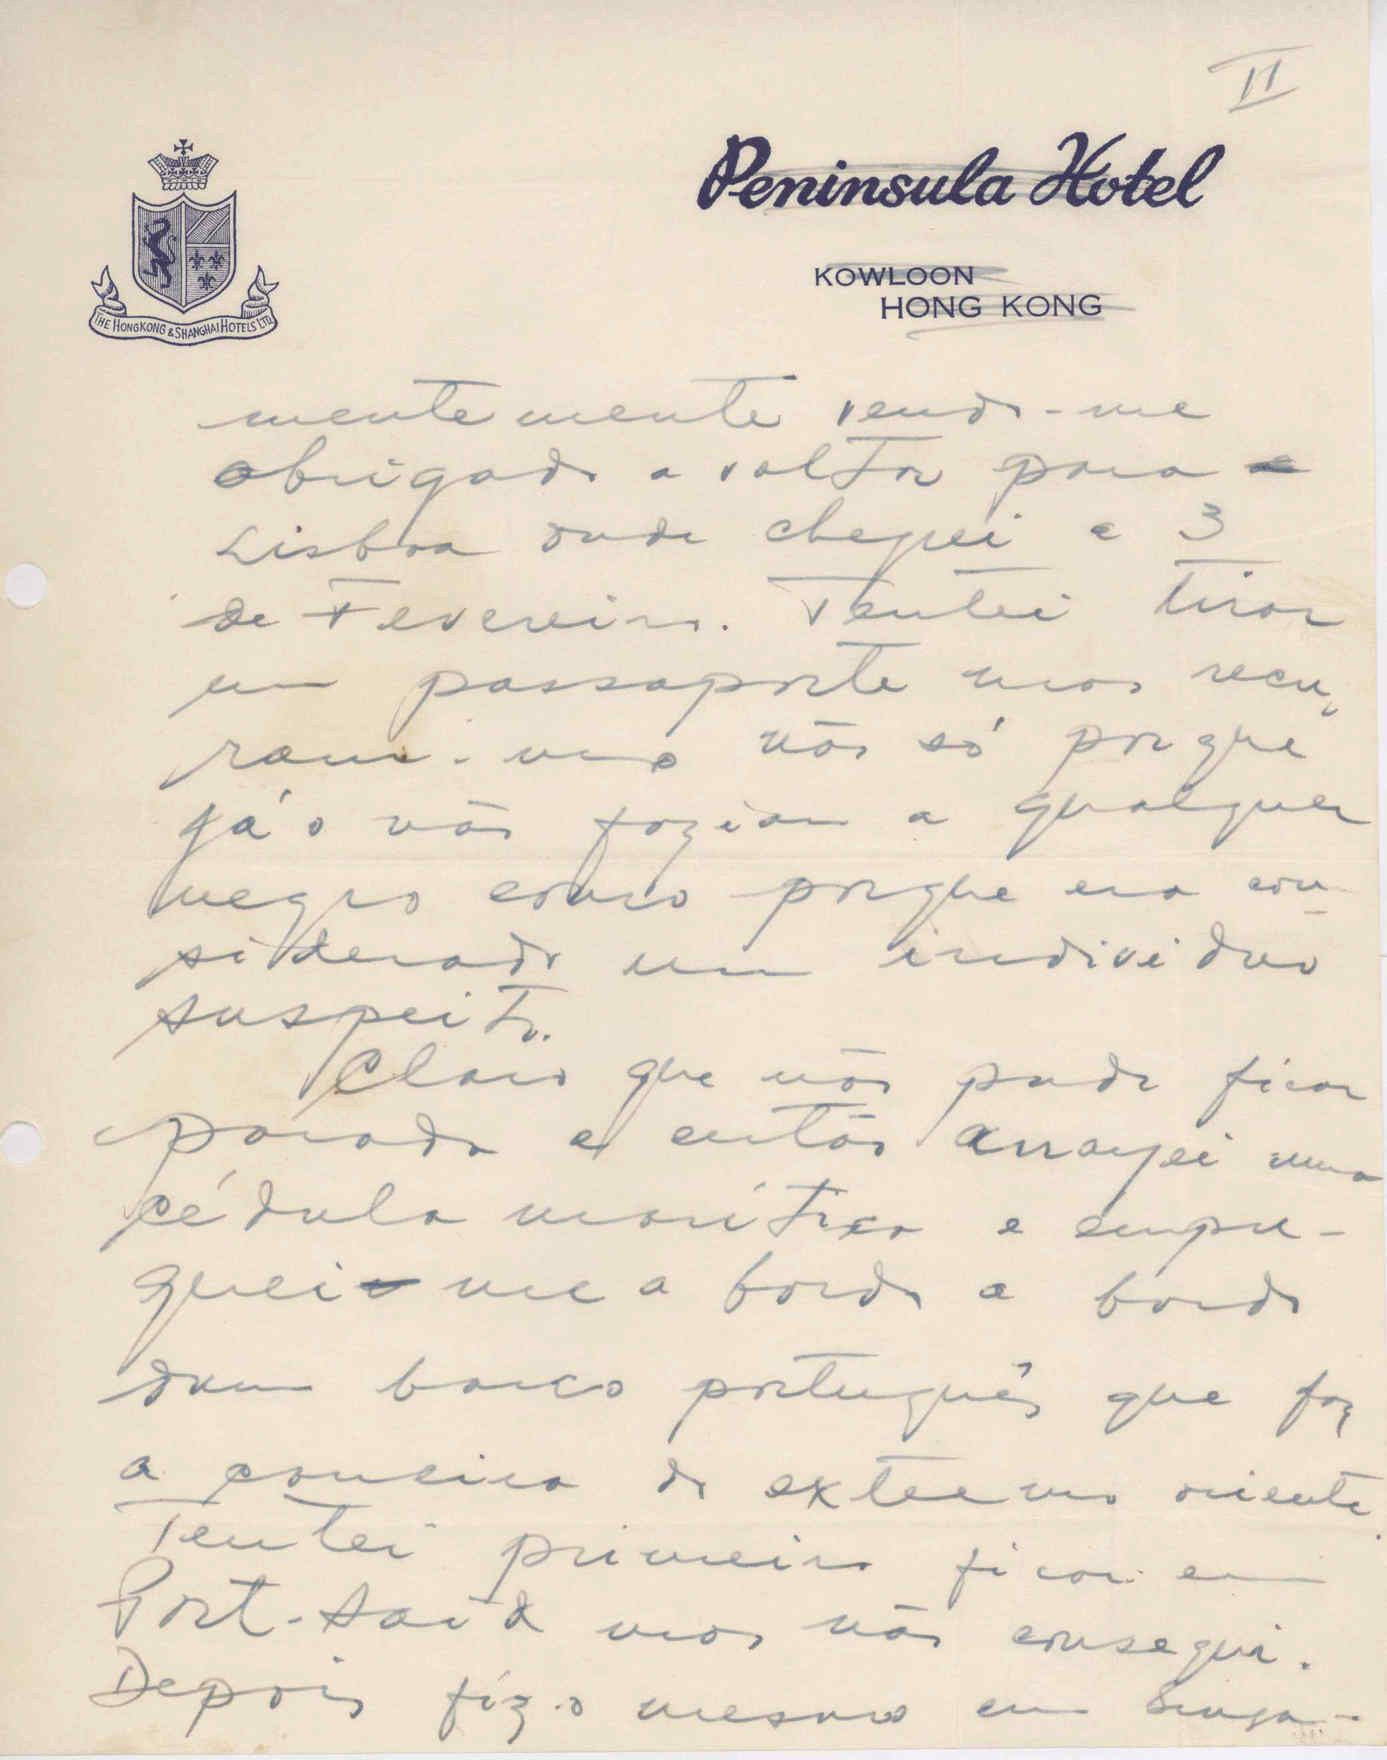 II
Peninsula Hotel
KOWLOON
HONG KONG
THE HONGKONG & SHANGHAI HOTELS LTD
mentemente vendo-me
obrigado a voltar para
Lisboa onde cheguei a 3
de Fevereiro. Tentei tirar
um passaporte mas recu,
ram-mo não só porque
já o não faziam a qualquer
negro como porque era con-
siderado um individuo
suspeito.
Claro que não pude ficar
parado e então arranjei uma
cédula marítima e empre-
guei-me a bordo a bordo
dum barco português que faz
a carreira do extremo oriente.
Tentei primeiro ficar em
Port-Said mas não consegui.
Depois fiz o mesmo em Singa-